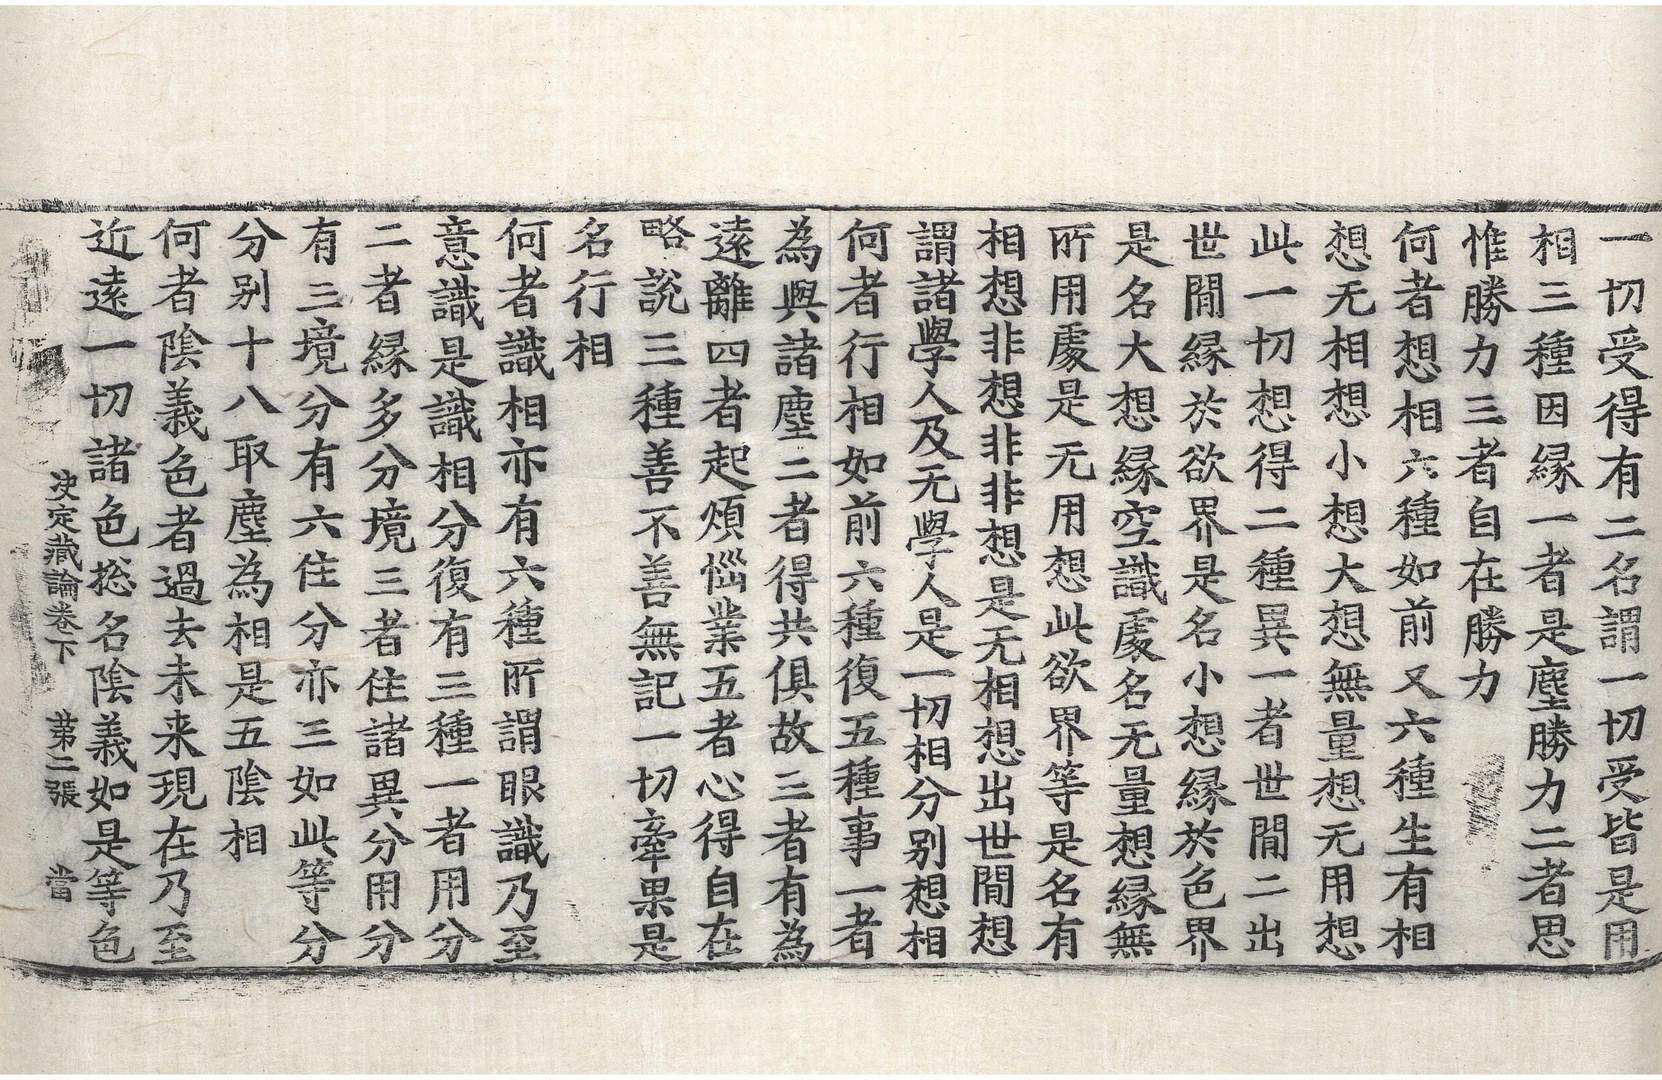 一切受得有二名謂一切受皆是用
相三種因緣一者是塵勝力二者思
惟勝力三者自在勝力
何者想相六種如前又六種生有相
想无相想小想大想無量想无用想
此一切想得二種異一者世間二出
世間緣於欲界是名小想緣於色界
是名大想緣空識處名无量想緣無
所用處是无用想此欲界等是名有
相想非想非非想是无相想出世間想
謂諸學人及无學人是一切相分别想相
何者行相如前六種復五種事一者
為與諸塵二者得共俱故三者有為
遠離四者起煩惱業五者心得自在
略説三種善不善無記一切牽果是
名行相
何者識相亦有六種所謂眼識乃至
意識是識相分復有三種一者用分
二者緣多分境三者住諸異分用分
有三境分有六住分亦三如此等分
分别十八取塵為相是五陰相
何者陰義色者過去未来現在乃至
近遠一切諸色捴名陰義如是等色
决定藏論卷下　第二張　當